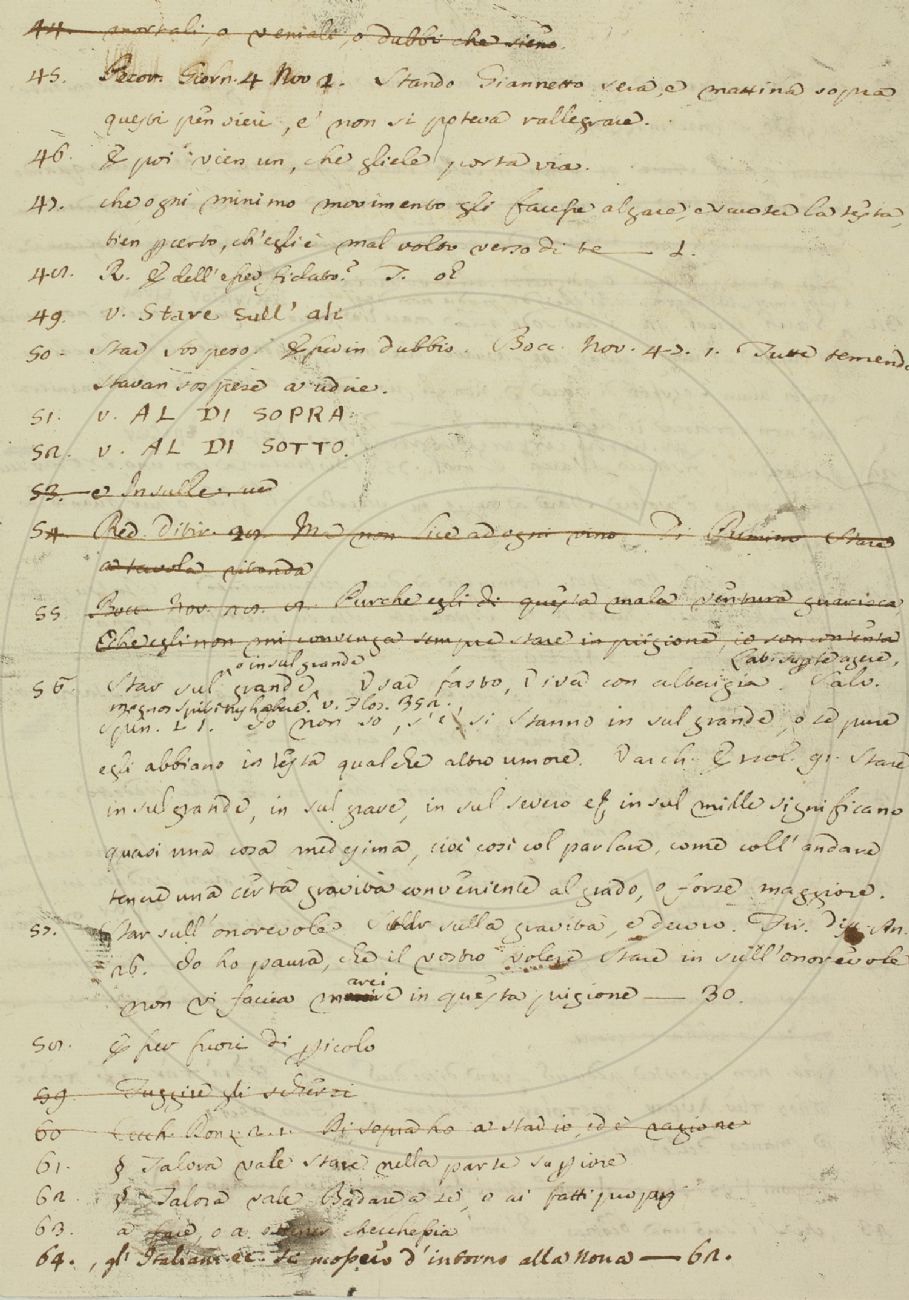 44. mortali, o veniali, o dubbi che sieno.
45. Pecor. Giorn. 4 Nov 2. Stando Giannetto sera, e mattina sopra
questi pensieri, e non si poteva rallegrare.
46. E poi vien un, che gliele porta via.
47. che ogni minimo movimento gli facesse alzare, e scuoter la testa,
tien pcerto, ch'egli è mal volto verso di te — 1.
48. R. § dell'esser fidato.
49. v. Stare sull' ali
50. Star sospeso. Esser in dubbio. Bocc. Nov. 47. 1. Tutti temendo
stavan sospesi a udire.
51. v. AL DI SOPRA.
52. v. AL DI SOTTO.
53. e Insulle
54. Red. Ditir. Ma non lice ad ogni vino Di Rimino Stare
a tavola ritonda
55. Bocc. Nov. Purche egli di questa mala ventura guarisca
Che egli non mi convenga sempre stare in prigione, io son contenta
o in sul grande
56. Star sul grande. Usar fasto, Viver con alterigia. Salv.
v. Flos. 352.
Spin. Io non so, s'e' si stanno in sul grande, o se pure
egli abbiano in testa qualche altro umore. Varch. Ercol. 91. Stare
in sul grande, in sul grave, in sul severo in sul mille significano
quasi una cosa medesima, cioè così col parlare, come coll' andare
tenere una certa gravità conveniente al grado, o forse maggiore.
57. Star sull' onorevole Star sulla gravità, e decoro. Fir. Disc. An.
26. Io ho paura, che il vostro volere stare in sull' onorevole
non vi faccia in questa prigione — 30.
58. § per fuori di pricolo
59. Fuggire gli scherzi
60. Cecch. Bisogna ho a stadio, ed è ragione
61. § Talora vale stare nella parte supriore
62. § Talora vale Badare a sè, o ai fatti propri
63. a fare, o a checchessia
64. , gl' Italiani ec. si mossero d' intorno alla nona — 62.